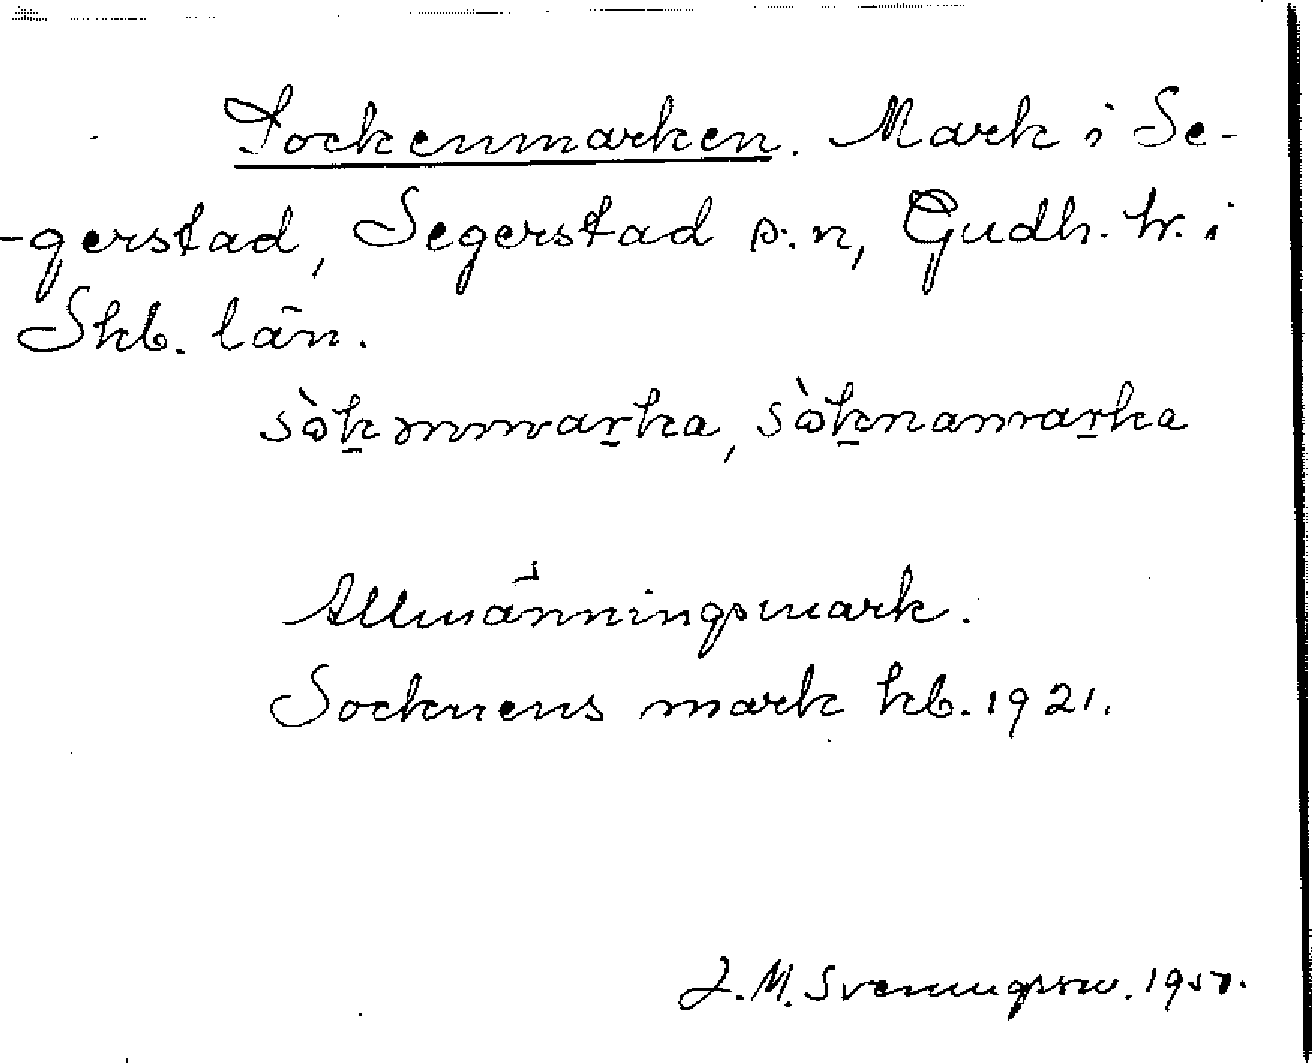 Sockenmarken. Mark i Se-
-gerstad, Segerstad s:n, Gudh. hr. i
Skb. län.
sòkmmarka, sòknamarka
Allmänningsmark.
Socknens mark kb. 1921.
J. M. Svenningson. 1957.